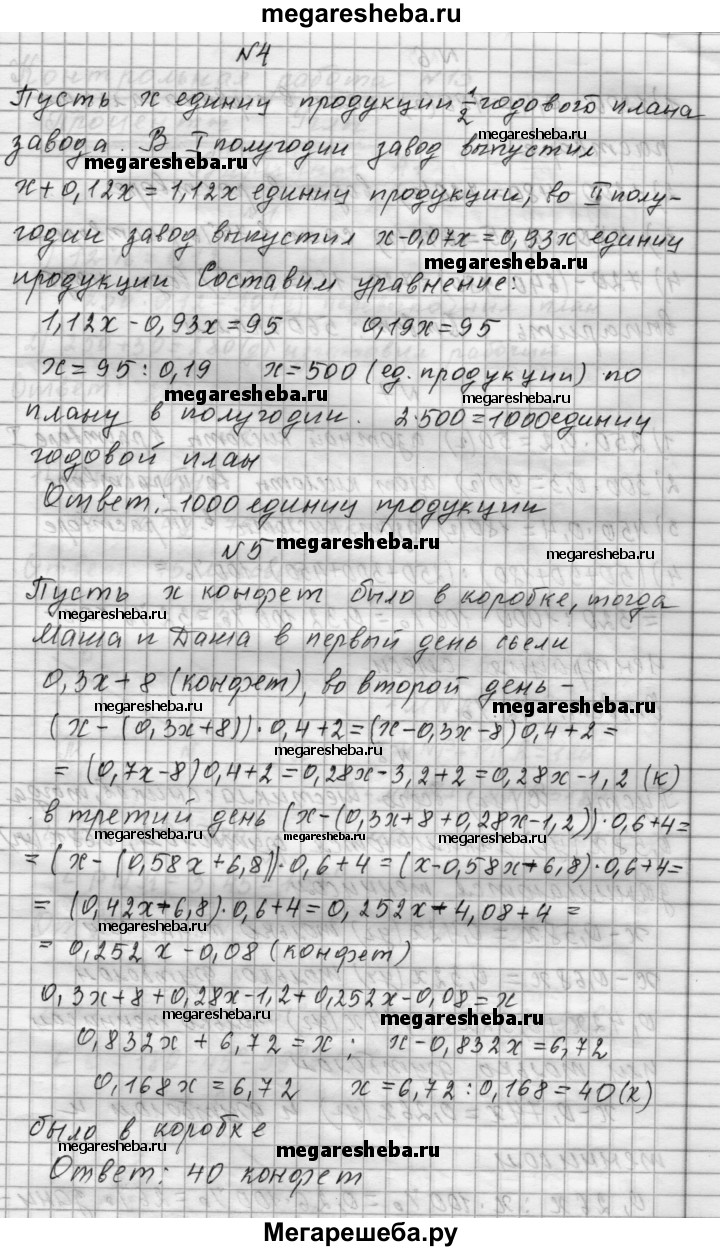 megaresheba.ru
№4
Пусть x единиц продукции 1/2 годового плана
завода. В I полугодии завод выпустил
megaresheba.ru
x+0,12x=1,12x единиц продукции, во II полу-
годии завод выпустил x-0,07x=0,93x единиц
megaresheba.ru
продукции Составим уравнение:
1,12x-0,93x=95 0,19x=95
x=95:0,19 x=500 (ед. продукции) по
megaresheba.ru
плану в полугодии. 2·500=1000единиц
годовой план
Ответ: 1000 единиц продукции
№5 megaresheba.ru megaresheba.ru
Пусть x конфет было в коробке, тогда
megaresheba.ru
Маша и Даша в первый день съели
0,3x+8 (конфет), во второй день -
megaresheba.ru megaresheba.ru
(x-(0,3x+8))·0,4+2=(x-0,3x-8)0,4+2=
megaresheba.ru
=(0,7x-8)0,4+2=0,28x-3,2+2=0,28x-1,2 (к)
в третий день (x-(0,3x+8+0,28x-1,2))·0,6+4=
megaresheba.ru megaresheba.ru megaresheba.ru
=(x-(0,58x+6,8))·0,6+4=(x-0,58x-6,8)·0,6+4=
=(0,42x-6,8)·0,6+4=0,252x-4,08+4=
=0,252x-0,08 (конфет)
0,3x+8+0,28x-1,2+0,252x-0,08=x
megaresheba.ru megaresheba.ru
0,832x+6,72=x; x-0,832x=6,72
0,168x=6,72 x=6,72:0,168=40(к)
было в коробке
megaresheba.ru megaresheba.ru megaresheba.ru
Ответ: 40 конфет
Мегарешеба.ру